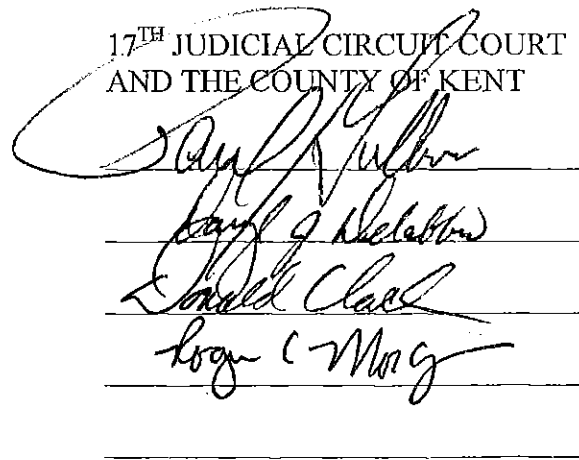 17TH JUDICIAL CIRCUIT COURT
AND THE COUNTY OF KENT
Daryl J
Donald Clack
Roger C Morg